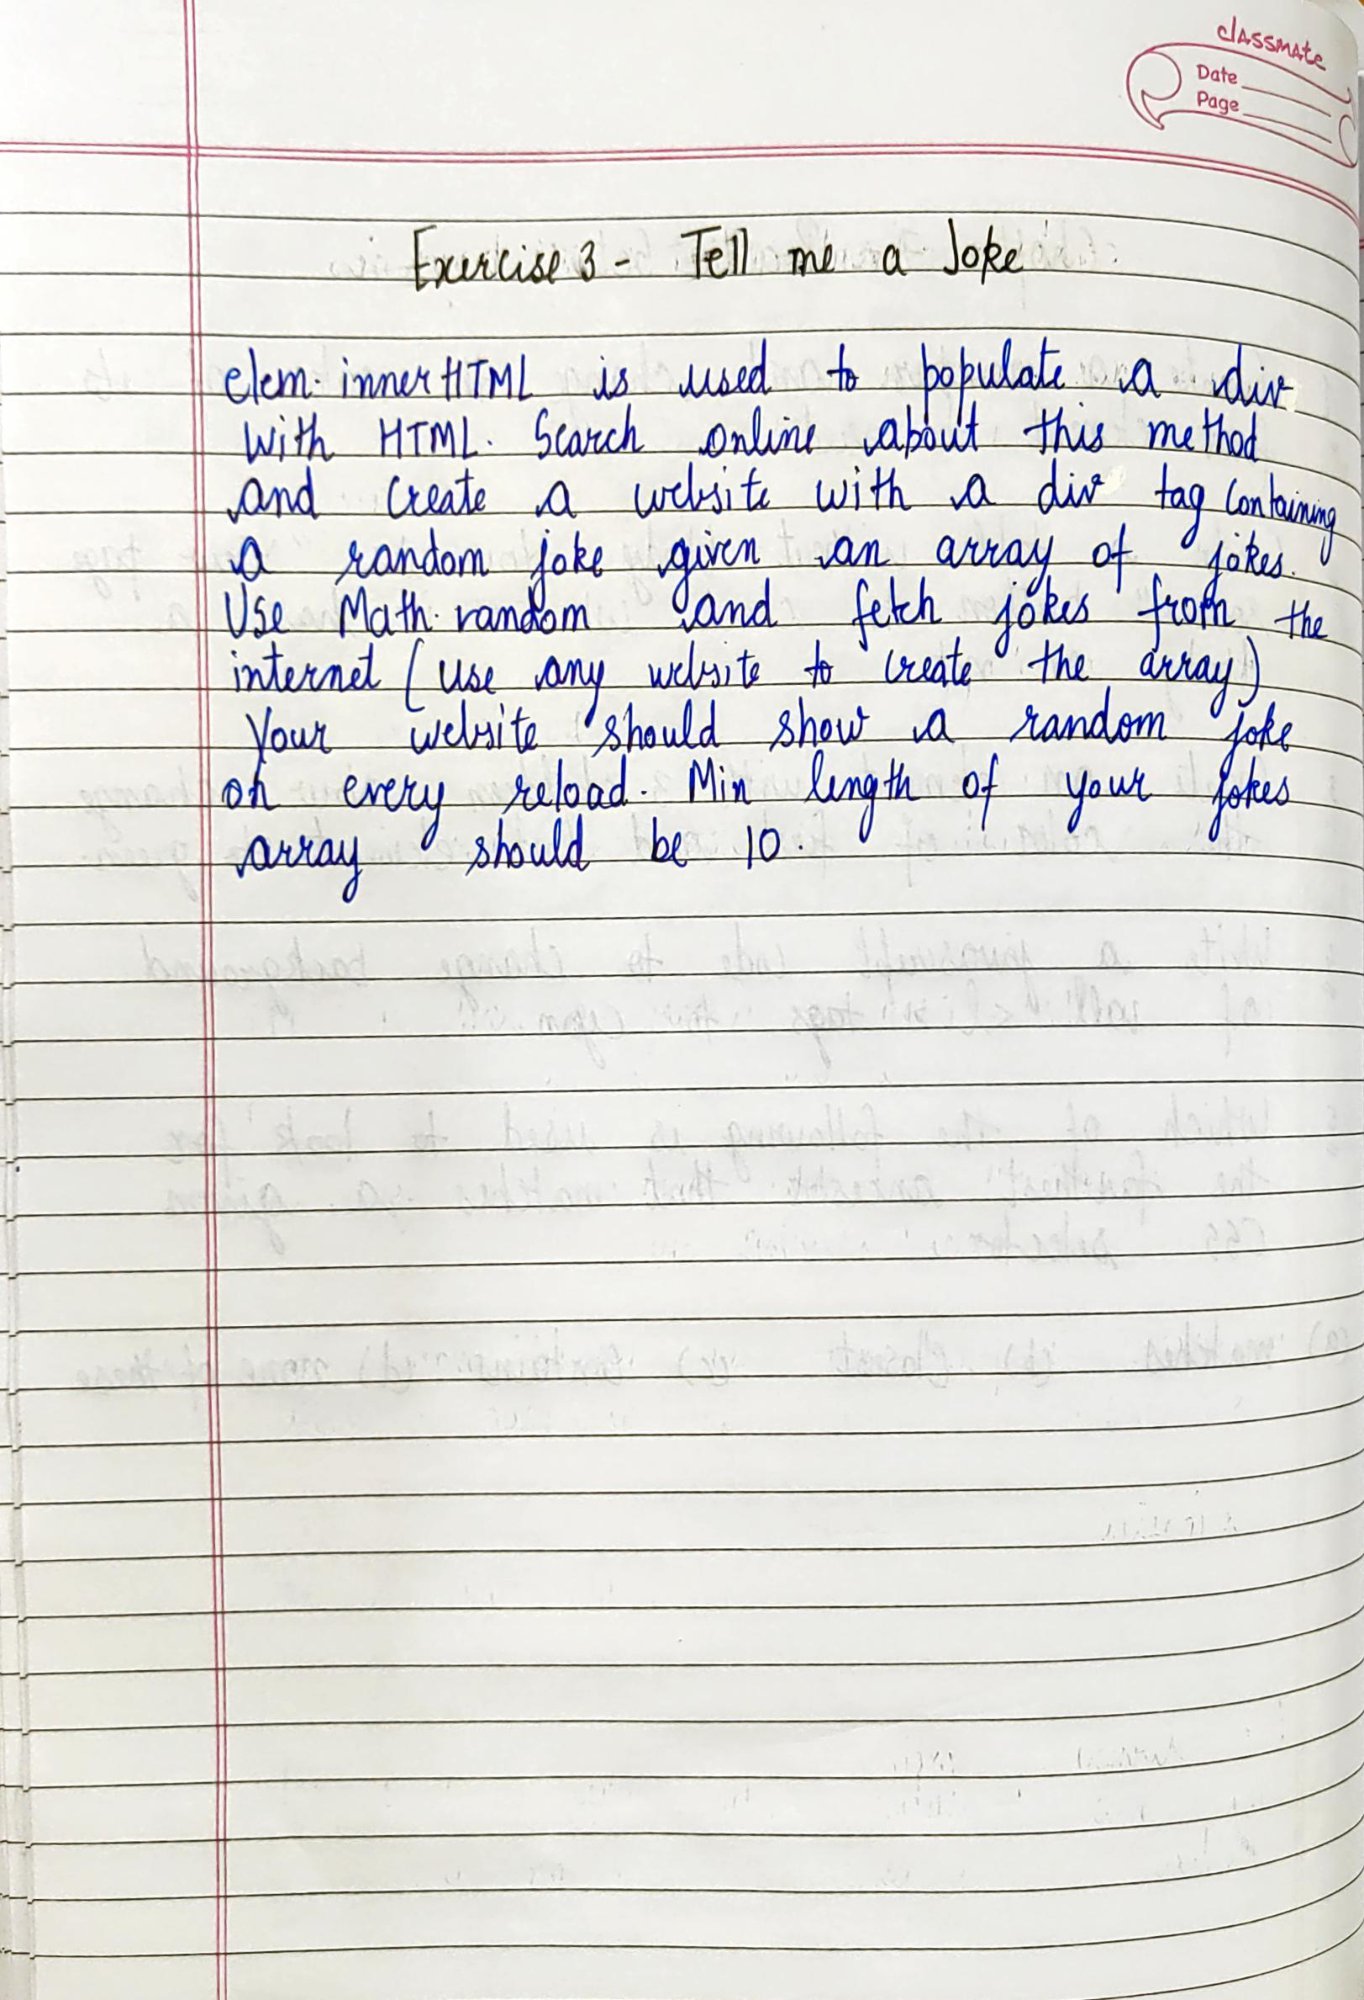 classmate
Date
Page
Exercise 3 - Tell me a Joke
elem.innerHTML is used to populate a div
with HTML. Search online about this method
and create a website with a div tag containing
a random joke given an array of jokes.
Use Math.random and fetch jokes from the
internet (use any website to create the array)
Your website should show a random joke
on every reload. Min length of your jokes
array should be 10.